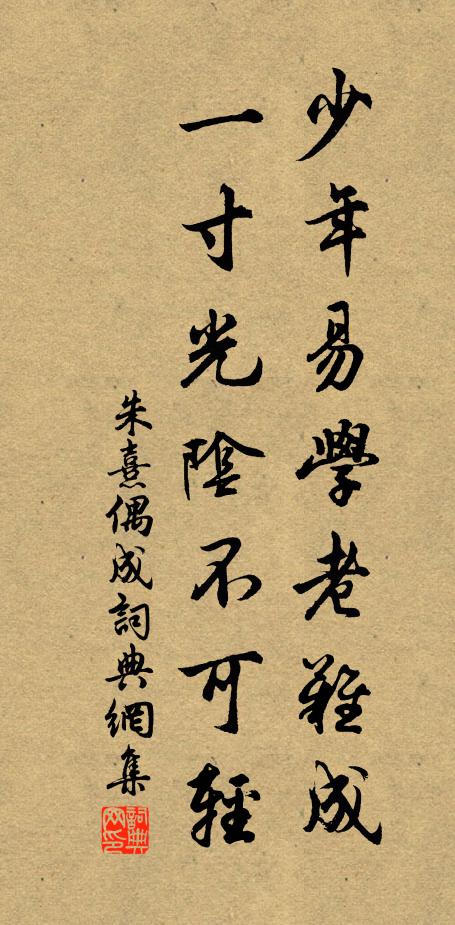 少年易學老難成
一寸光陰不可輕
朱熹偶成詞典網集
詞典網印